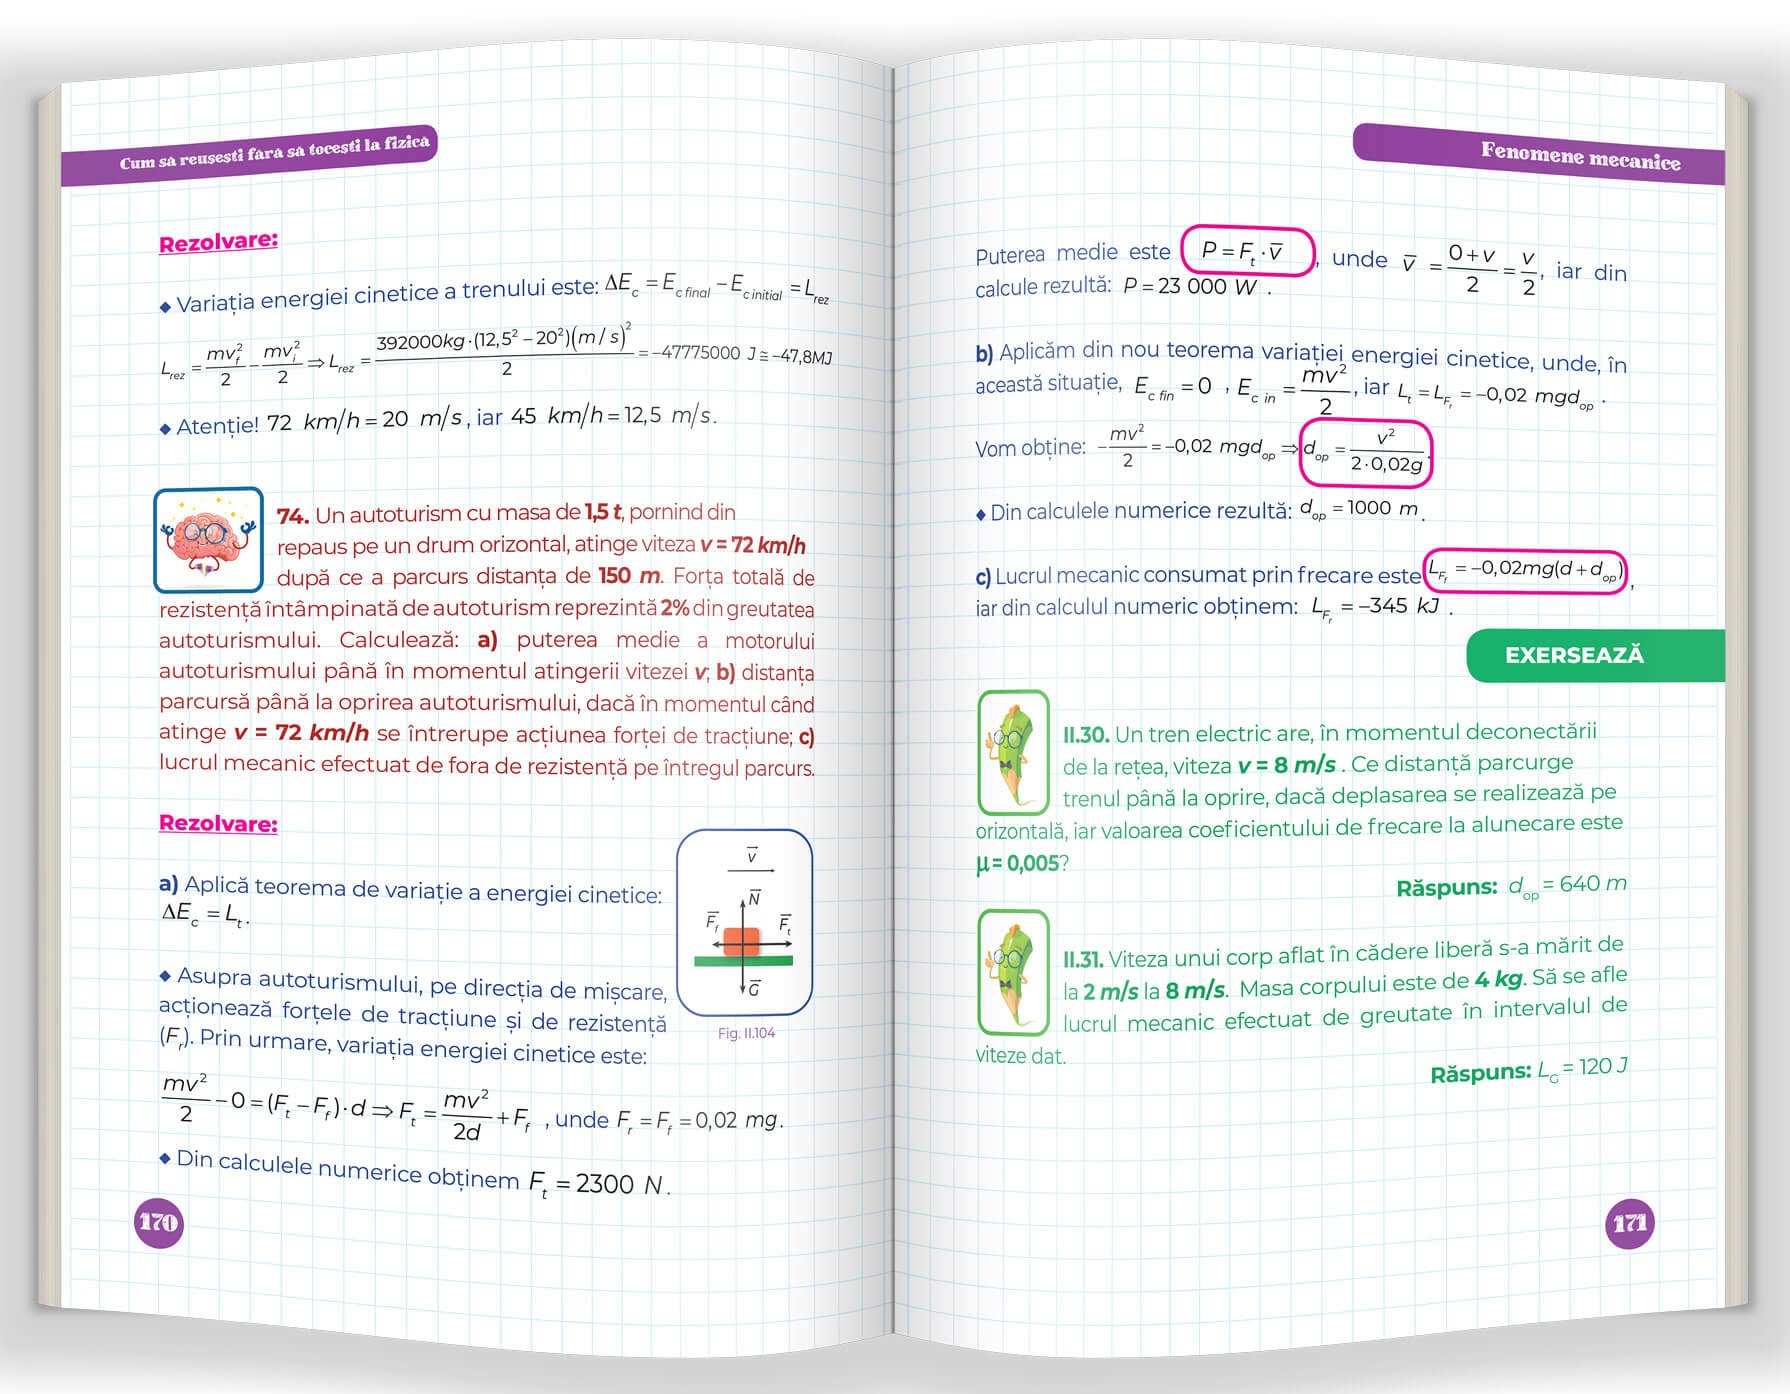 Cum să reușești fără să tocești la fizică
Rezolvare:
◆ Variația energiei cinetice a trenului este: ΔE_c = E_c final − E_c initial = L_rez
L_rez = mv_f²/2 − mv_i²/2 ⇒ L_rez = 392000kg·(12,5² − 20²)(m/s)²/2 = −47775000 J ≅ −47,8MJ
◆ Atenție! 72 km/h = 20 m/s, iar 45 km/h = 12,5 m/s.
74. Un autoturism cu masa de 1,5 t, pornind din
repaus pe un drum orizontal, atinge viteza v = 72 km/h
după ce a parcurs distanța de 150 m. Forța totală de
rezistență întâmpinată de autoturism reprezintă 2% din greutatea
autoturismului. Calculează: a) puterea medie a motorului
autoturismului până în momentul atingerii vitezei v; b) distanța
parcursă până la oprirea autoturismului, dacă în momentul când
atinge v = 72 km/h se întrerupe acțiunea forței de tracțiune; c)
lucrul mecanic efectuat de fora de rezistență pe întregul parcurs.
Rezolvare:
a) Aplică teorema de variație a energiei cinetice:
ΔE_c = L_t.
◆ Asupra autoturismului, pe direcția de mișcare,
acționează forțele de tracțiune și de rezistență
(F_r). Prin urmare, variația energiei cinetice este:
v
N
F_f
F_t
G
Fig. II.104
mv²/2 − 0 = (F_t − F_f)·d ⇒ F_t = mv²/2d + F_f , unde F_r = F_f = 0,02 mg.
◆ Din calculele numerice obținem F_t = 2300 N.
170
Fenomene mecanice
Puterea medie este P = F_t · v̄ , unde v̄ = (0+v)/2 = v/2, iar din
calcule rezultă: P = 23 000 W .
b) Aplicăm din nou teorema variației energiei cinetice, unde, în
această situație, E_c fin = 0 , E_c in = mv²/2, iar L_t = L_F_r = −0,02 mgd_op .
Vom obține: −mv²/2 = −0,02 mgd_op ⇒ d_op = v²/2·0,02g.
◆ Din calculele numerice rezultă: d_op = 1000 m.
c) Lucrul mecanic consumat prin frecare este L_F_f = −0,02mg(d + d_op) ,
iar din calculul numeric obținem: L_F_r = −345 kJ .
EXERSEAZĂ
II.30. Un tren electric are, în momentul deconectării
de la rețea, viteza v = 8 m/s . Ce distanță parcurge
trenul până la oprire, dacă deplasarea se realizează pe
orizontală, iar valoarea coeficientului de frecare la alunecare este
μ = 0,005?
Răspuns: d_op = 640 m
II.31. Viteza unui corp aflat în cădere liberă s-a mărit de
la 2 m/s la 8 m/s. Masa corpului este de 4 kg. Să se afle
lucrul mecanic efectuat de greutate în intervalul de
viteze dat.
Răspuns: L_G = 120 J
171